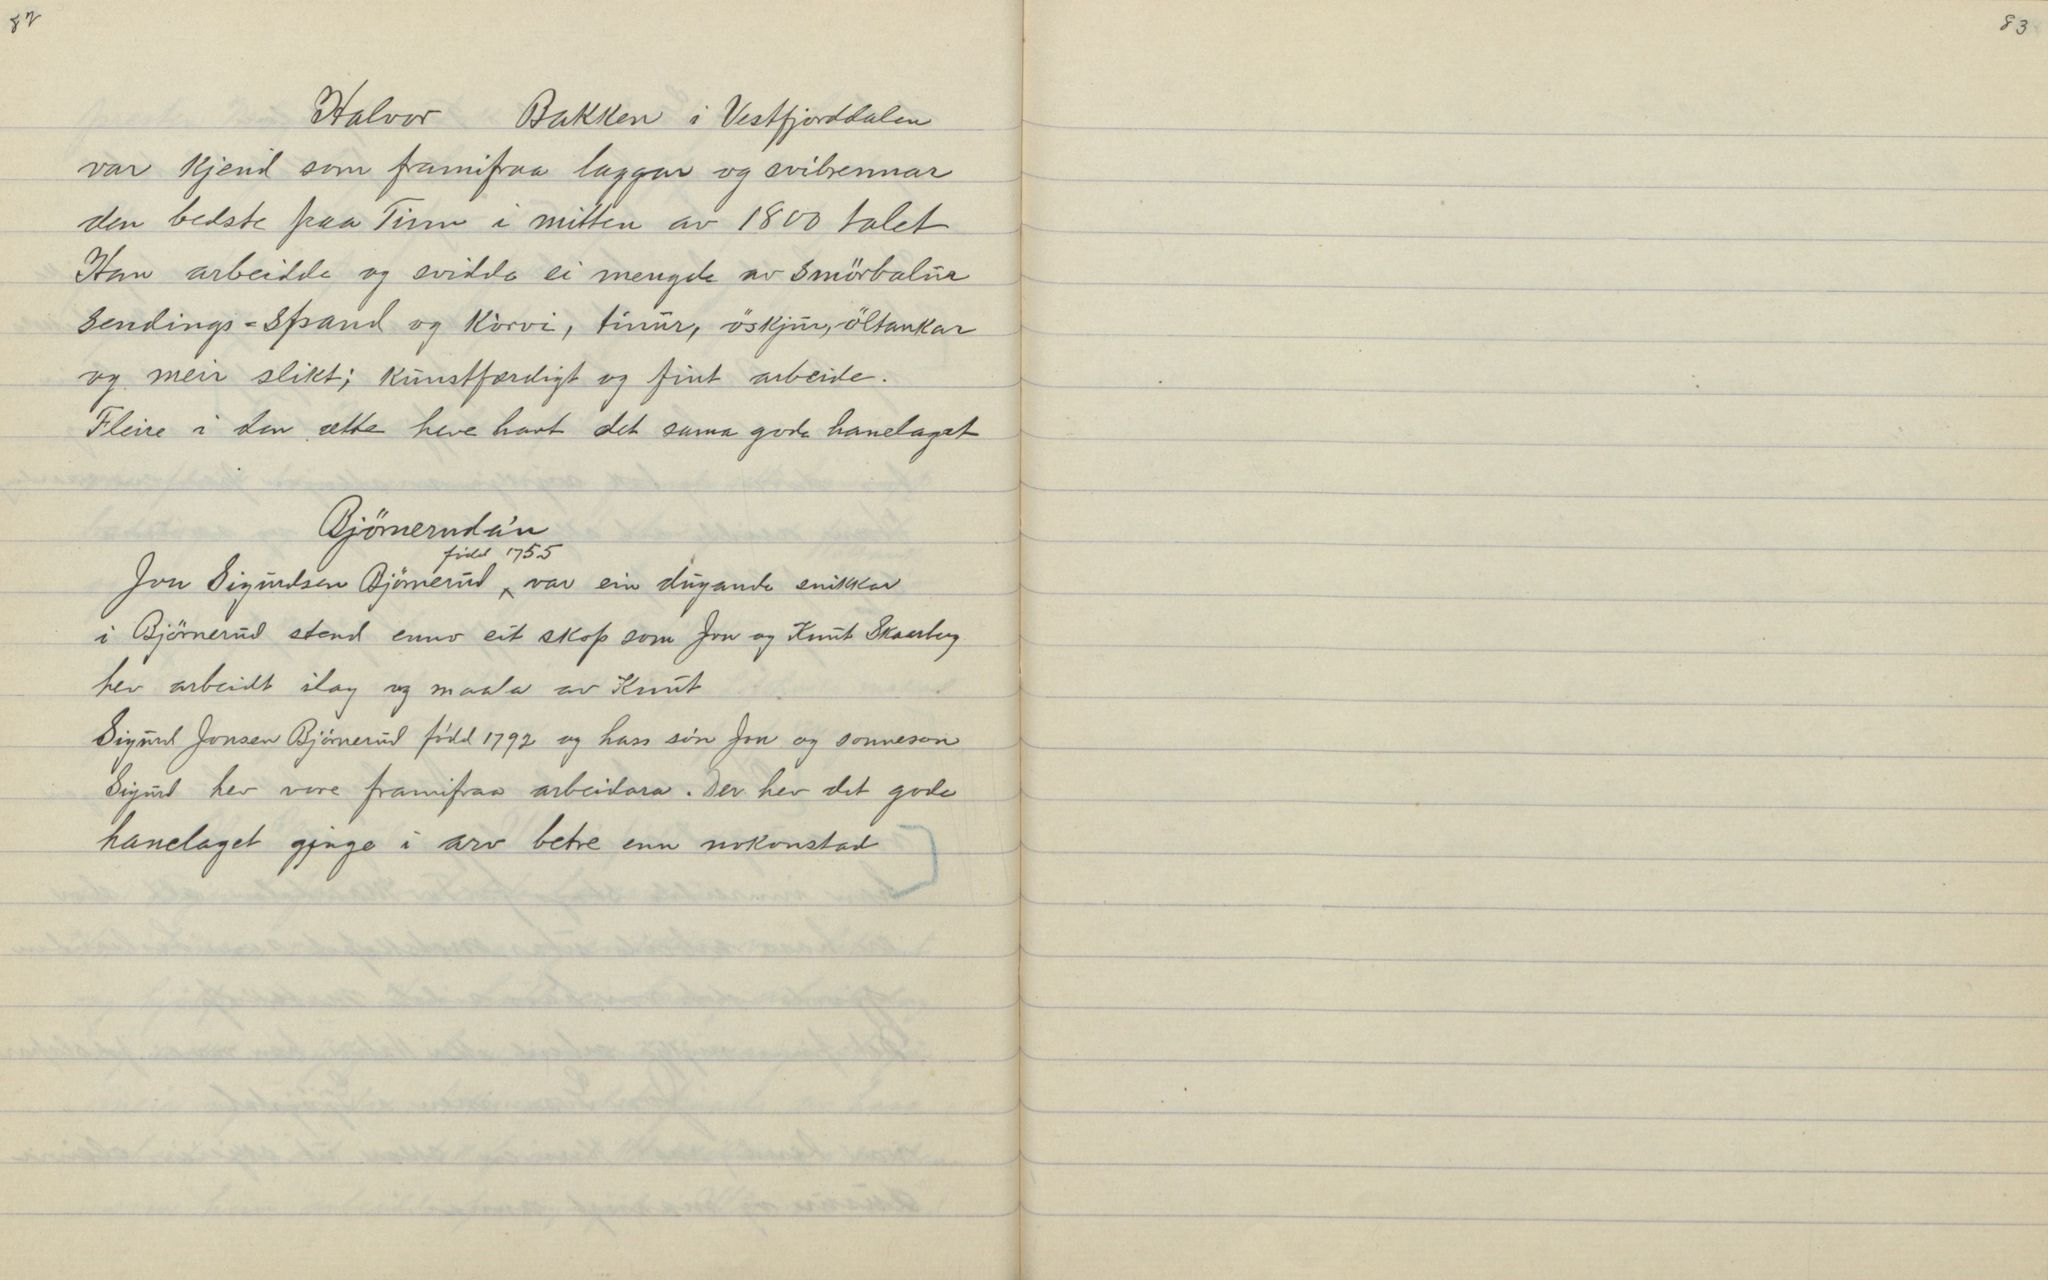 82
83
Halvor Bakken i Vestfjorddalen
var kjend som framifraa laggar og svibrennar
den bedste paa Tinn i mitten av 1800 talet
Han arbeidde og svidde ei mengde av smörbalur
sendings-spand og körvi, tinur, öskjur, öltankar
og meir slikt; kunstfærdigt og fint arbeide.
Fleire i den ætte heve havt det sama gode hanelaget
Björneruda'n
född 1755
Jon Sigurdsen Björnerud, var ein dugande snikkar
i Björnerud stend enno eit skap som Jon og Knut Skaarberg
hev arbeidt ilag og maala av Knut
Sigurd Jonsen Björnerud född 1792 og hass sön Jon og sonneson
Sigurd hev vore framifraa arbeidara. Der hev det gode
hanelaget gjenge i arv betre enn nokonstad